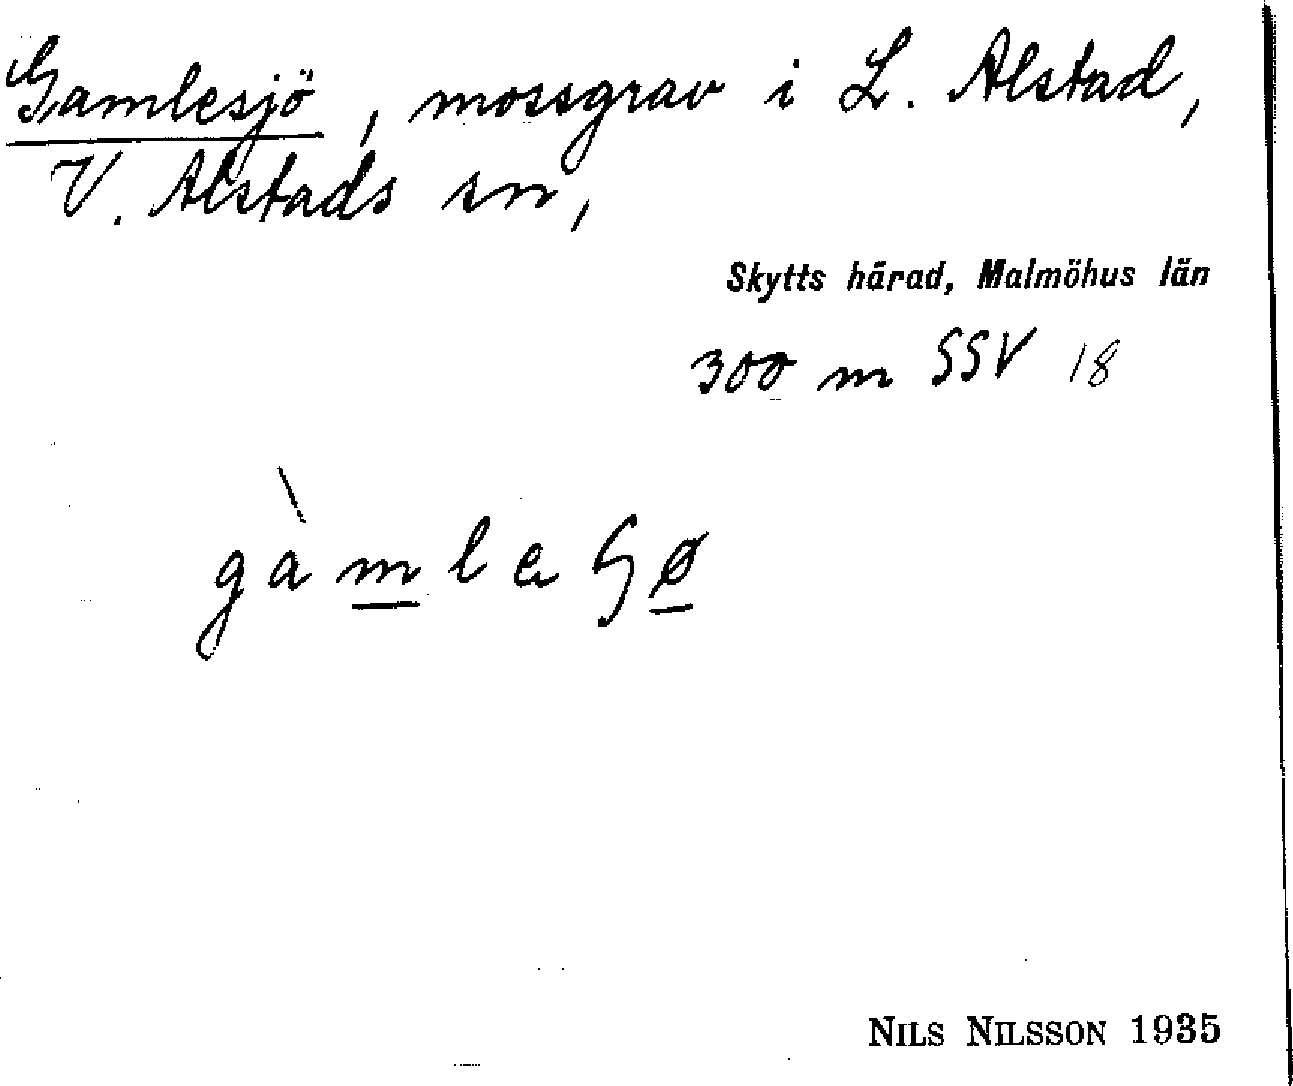 Gamlesjö, mossgrav i L. Alstad,
V. Alstads sn,
Skytts härad, Malmöhus län
300 m SSV 18
NILS NILSSON 1935